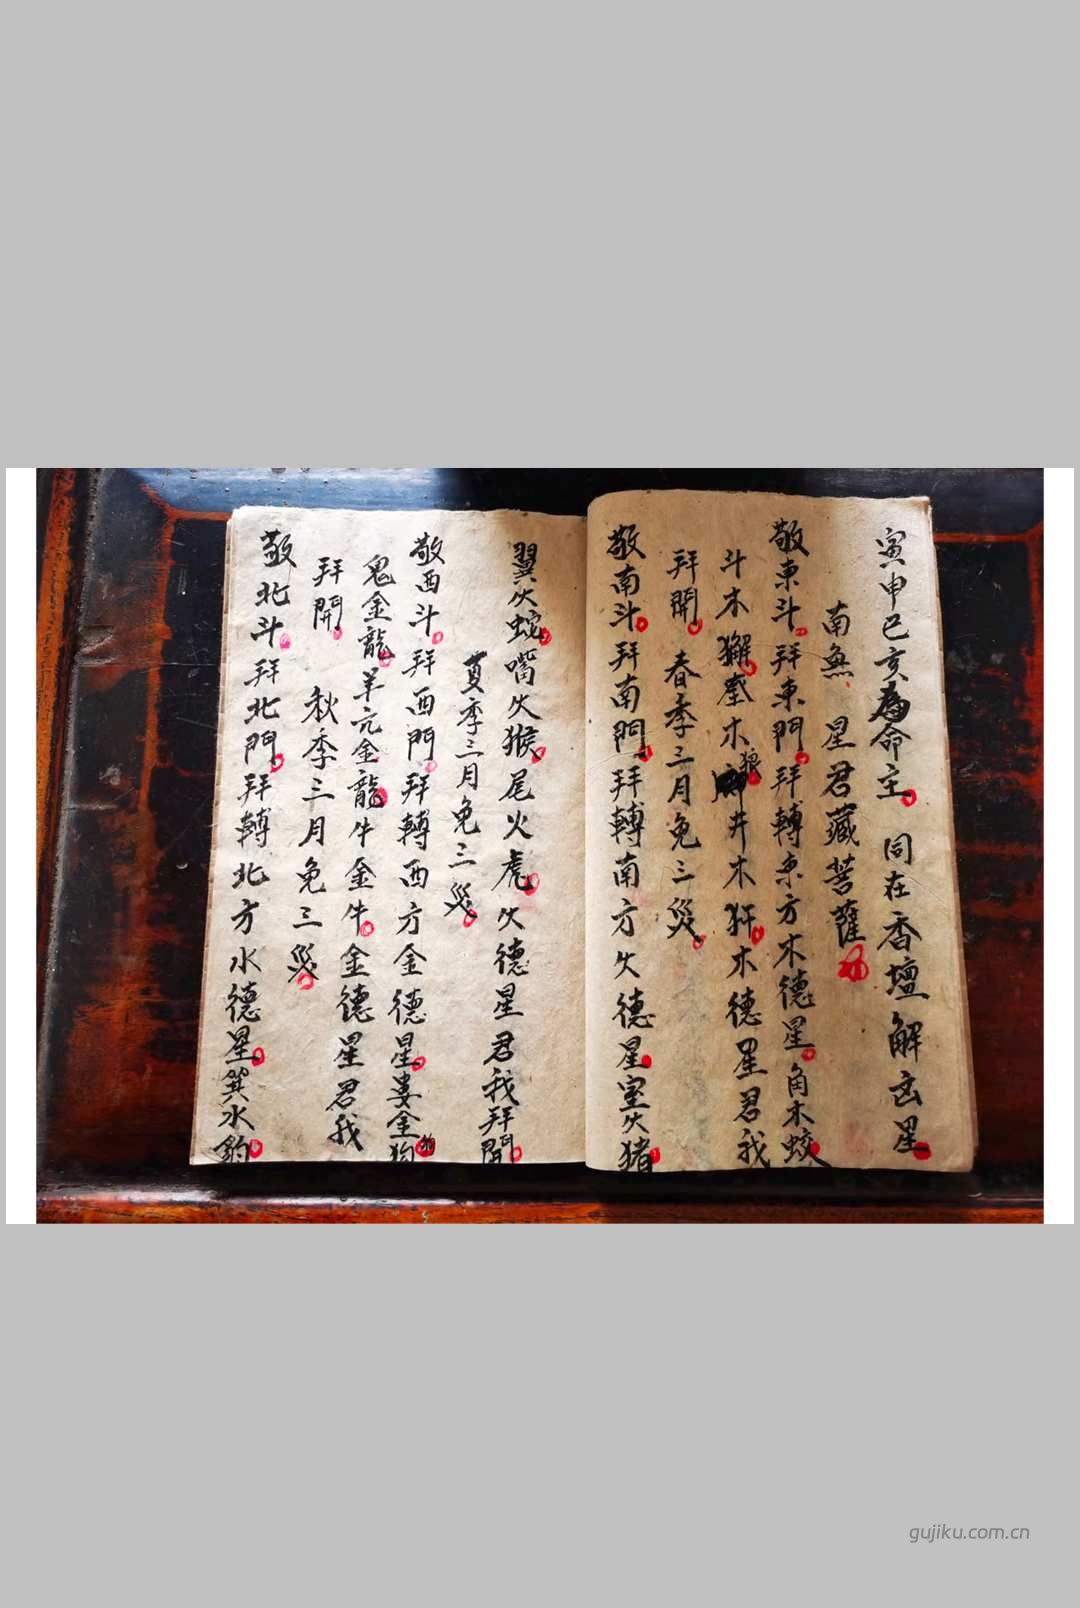 寅申巳亥為命主同在香壇解凶星
南無 星君藏菩薩
敬東斗拜東門拜轉東方木德星角木蛟
斗木獬奎木狼井木犴木德星君我
拜開 春季三月免三災
敬南斗拜南門拜轉南方火德星室火猪
翼火蛇嘴火猴尾火虎火德星君我拜開
夏季三月免三災
敬西斗拜西門拜轉西方金德星婁金狗
鬼金龍羊亢金龍牛金牛金德星君我
拜開 秋季三月免三災
敬北斗拜北門拜轉北方水德星箕水豹
gujiku.com.cn